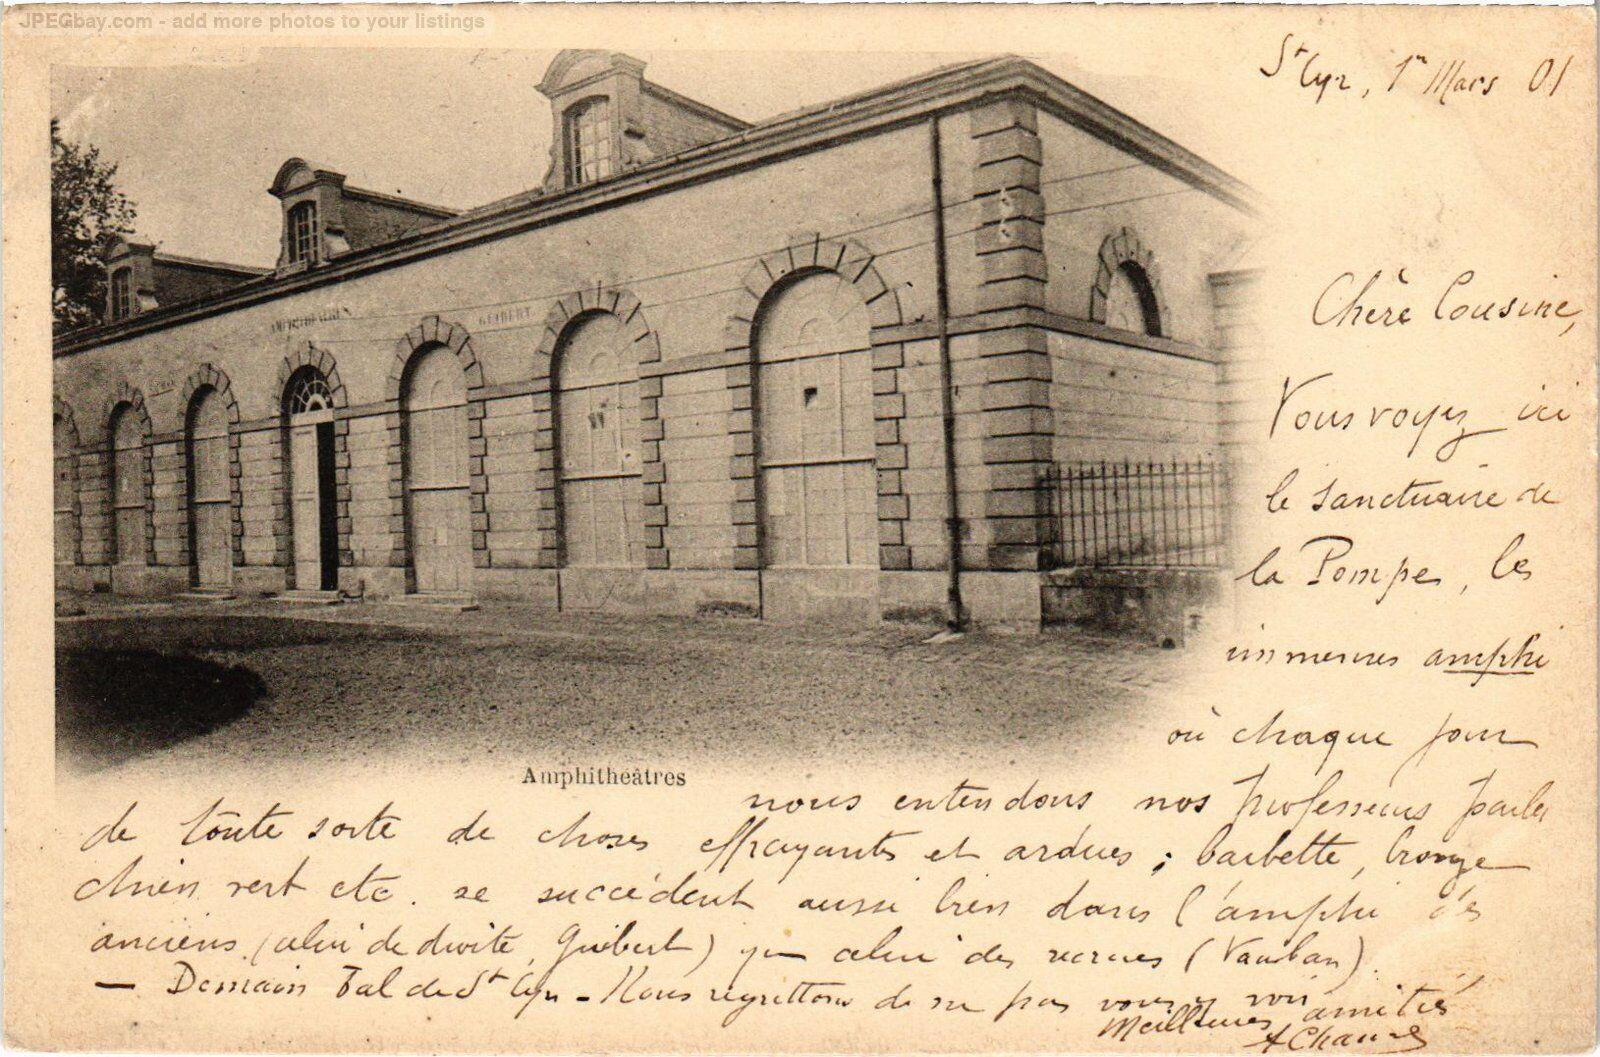 JPEGbay.com - add more photos to your listings
St Cyr, 1er Mars 01
Chère Cousine,
Vous voyez ici
le sanctuaire de
la Pompe, les
immenses amphi
où chaque jour
AMPHITHEATRES
GUIBERT
Amphithéâtres
nous entendons nos professeurs parler
de toute sorte de choses effrayantes et ardues ; barbette, bronze
chien vert etc. se succèdent aussi bien dans l'amphi des
anciens (celui de droite, Guibert) que celui des recrues (Vauban).
— Demain Bal de St Cyr - Nous regrettons de ne pas vous y voir
Meilleures amitiés